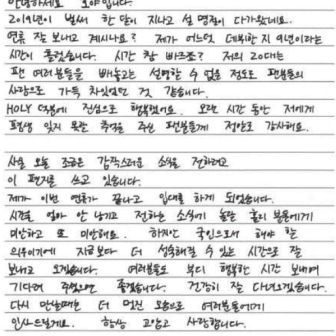 안녕하세요 호야입니다.
2019년이 벌써 한 달이 지나고 설 명절이 다가왔네요.
연휴 잘 보내고 계시나요? 제가 어느덧 데뷔한 지 9년이라는
시간이 흘렀습니다. 시간 참 빠르죠? 저의 20대는
팬 여러분들을 빼놓고는 설명할 수 없을 정도로 팬분들의
사랑으로 가득 차있었던 것 같습니다.
HOLY 덕분에 진심으로 행복했어요. 오랜 시간 동안 저에게
평생 잊지 못할 추억을 주신 팬분들께 정말로 감사해요.
사실 오늘 조금은 갑작스러운 소식을 전하려고
이 편지를 쓰고 있습니다.
제가 이번 연휴가 끝나고 입대를 하게 되었습니다.
시간을 얼마 안 남기고 전하는 소식이 놀란 분들에게
미안하고 또 미안해요. 하지만 국민으로서 해야 할
의무이기에 지금보다 더 성숙해질 수 있는 시간으로 잘
보내고 오겠습니다. 여러분들도 부디 행복한 시간 보내며
기다려 주셨으면 좋겠습니다. 건강히 잘 다녀오겠습니다.
다시 만날때는 더 멋진 모습으로 여러분들에게
인사드릴게요. 항상 고맙고 사랑합니다.